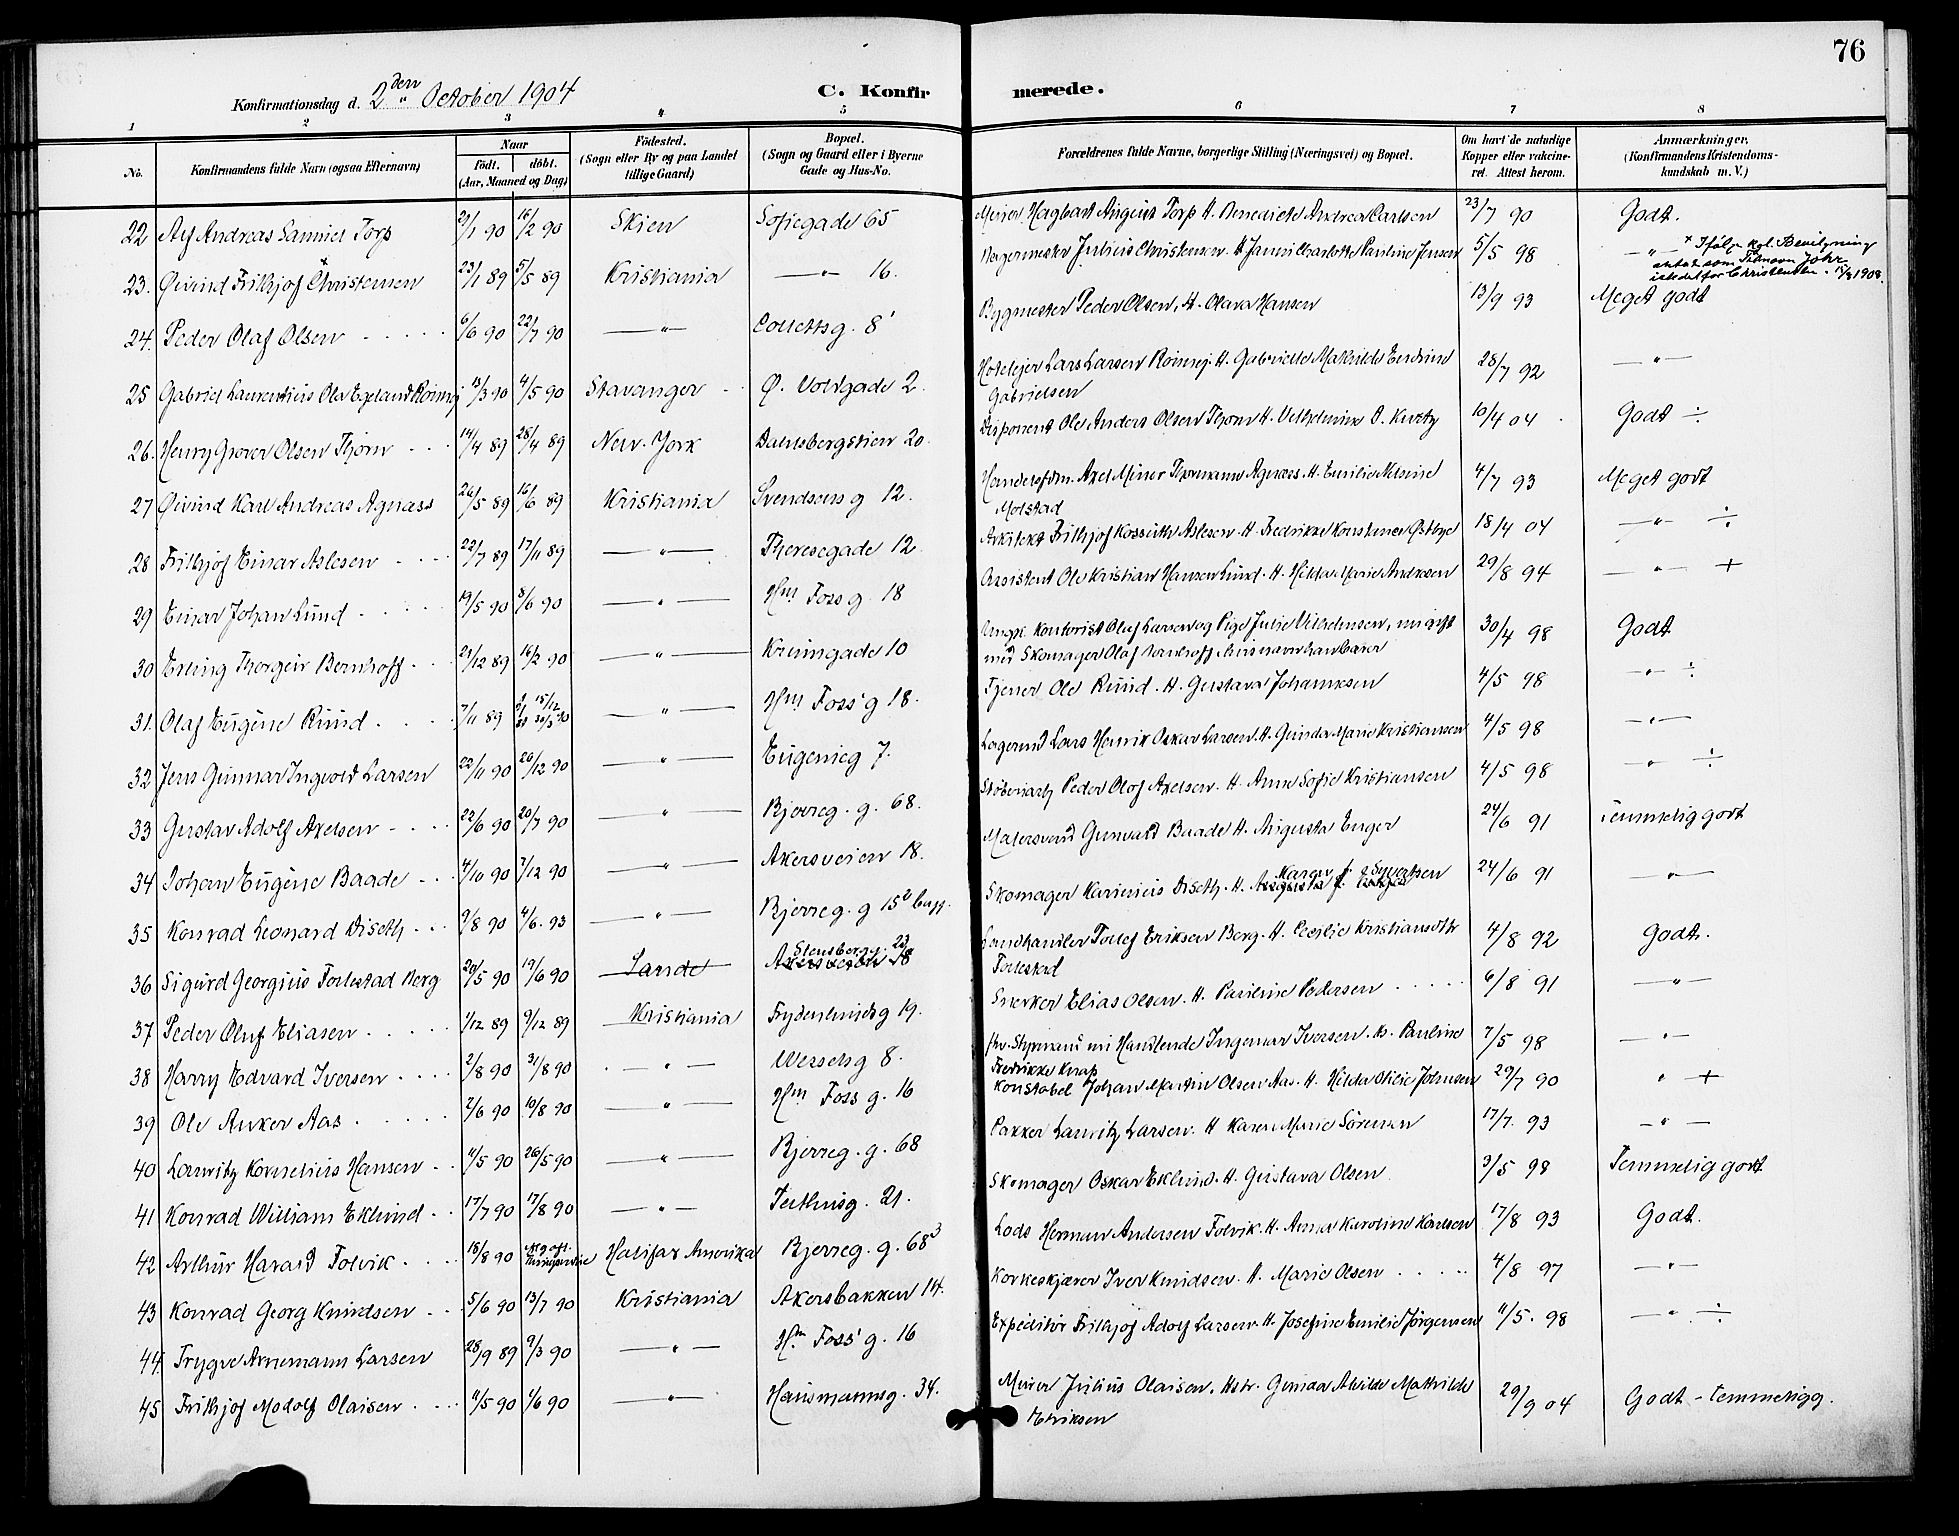 76
Konfirmationsdag d. 2den October 1904
C. Konfirmerede.
1 2 3 4 5 6 7 8
No. Konfirmandens fulde Navn (ogsaa Efternavn) Naar födt. döbt. (Aar, Maaned og Dag) Födested. (Sogn eller By og paa Landet tillige Gaard) Bopæl. (Sogn og Gaard eller i Byerne Gade og Hus-No. Forældrenes fulde Navne, borgerlige Stilling (Næringsvei) og Bopæl. Om havt de naturlige Kopper eller vakcineret. Attest herom. Anmærkninger. (Konfirmandens Kristendomskundskab m. V.)
22 Alf Andreas Samuel Torp 29/1 90 16/2 90 Skien Sofiegade 65 Murer Hagbart August Torp H. Benedicte Andrea Carlsen 23/7 90 Godt.
23. Øivind Frithjof Christensen 23/1 89 5/5 89 Kristiania —"— 16. Julius Christensen H. Charlotte Pauline Jensen 5/5 98 —"— + Ifølge kgl. Bevilgning antat som Filnavn istedetfor Christensen. 1908.
24. Peder Olaf Olsen 6/6 90 22/7 90 —"— Collettsg. 8 Bygmester Peder Olsen, H. Olava Hansen 13/9 93 Meget godt
25 Gabriel Laurentius Ola Egeland Romsej 13/3 90 4/5 90 Stavanger Ø. Voldgade 2. Hotelejer Lars Larsen Romsej. H. Gabrielle Mathilde Gabrielsen 28/7 92 —"—
26. Henry Grover Olsen Thorn 14/4 89 28/4 89 New-York Dalsbergstien 20. Disponent Ole Anders Olsen Thorn H. Vilhelmine O. Kurtz 10/4 04 Godt ÷
27 Øivind Karl Andreas Agnæss 26/5 89 16/6 89 Kristiania Svendsens g 12. Handelsfdm. Axel Minor Thormann Agnæss. H. Emilie Nilsine Molstad 4/7 93 Meget godt
28 Frithjof Einar Aslesen 22/7 89 17/11 89 —"— Theresegade 12. Arkitekt Frithjof Kossuth Aslesen. H. Fredrikke Konstance Østbye 18/4 04 —"— ÷
29 Einar Johan Lund 19/5 90 8/6 90 —"— Hm Foss g. 18 Assistent Ole Kristian Hansen Lund. H. Hilda Marie Andresen 29/8 94 —"— +
30 Erling Thorgeir Bernhoff 21/12 89 16/2 90 —"— Krumgade 10 Ungk. Kontorist Oluf Larsen og Pige Julie Vilhelmsen, nu gift med Skomager Olaf Bernhoff hvis navn han bærer 30/4 98 Godt
31. Olaf Eugène Ruud 7/11 89 —"— Hm Foss' g 18. Tjener Ole Ruud. H. Gustava Johannesen 4/5 98 —"— ÷
32 Jens Gunnar Ingvold Larsen 22/11 90 26/12 90 —"— Eugenieg 7. Lagermd Lars Henrik Oskar Larsen. H. Gunda Marie Kristiansen 4/5 98 —"—
33 Gustav Adolf Axelsen 22/6 90 20/7 90 —"— Bjerreg. g. 68. Støberiarb. Peder Olof Axelsen. H. Anne Sofie Kristiansen 4/5 98 —"— ÷
34 Johan Eugène Baade 4/10 90 7/12 90 —"— Akersveien 18. Malersvend Gunvald Baade H. Augusta Enger 24/6 91 Temmelig godt
35 Konrad Leonard Diseth 9/8 90 4/6. 93 —"— Bjerreg. g 15b bagg. Skomager Karinius Diseth. H. Karen Syvertsen 24/6 91 —"—
36 Sigurd Georgius Torlestad Berg 20/5 90 19/6 90 Sande Stensberg. 22 Landhandler Torlef Eriksen Berg. H. Cecilie Kristiansdtr Torlestad 4/8 92 Godt.
37 Peder Oluf Eliasen 1/12 89 9/12 89 Kristiania Frydenlundsg 19. Snerker Elias Olsen. H. Pauline Pedersen 6/8 91 —"—
38 Harry Edvard Iversen 2/8 90 31/8 90 —"— Wesselsg 8. fhv. Styrmand nu Handlende Ingemar Iversen. H. Pauline Fredrikke Knap 7/5 98 —"—
39 Ole Anker Aas 2/6 90 10/8 90 —"— Hm Foss g. 16 Konstabel Johan Martin Olsen Aas. H. Hilda Otilie Johnsen 29/7 90 " +
40 Lauritz Kornelius Hansen 11/5 90 26/5 90 —"— Bjerreg. g. 68 Pakker Lauritz Larsen. H Karen Marie Sörensen 17/7. 93 —"—
41 Konrad William Eklund 17/7 90 17/8 90 —"— Telthusg. 21. Skomager Oskar Eklund. H. Gustava Olsen 3/5 98 Temmelig godt
42 Arthur Harald Tolvik 18/8 90 Halifax Amerika Bjerreg. g. 68³ Lods Herman Andersen Tolvik. H. Anna Karoline Karlsen 17/8 93 Godt.
43 Konrad Georg Knudsen 5/6 90 13/7 90 Kristiania Akersbakken 14. Korkeskjærer Iver Knudsen. H. Marie Olsen 4/8 97 —"—
44. Trygve Arnemann Larsen 28/9 89 9/3 90 —"— Hm Foss' g. 16 Expeditör Frithjof Adolf Larsen. H. Josefine Emilie Jörgensen 11/5. 98 —"— ÷
45 Frithjof Modolf Olaisen 11/5 90 1/6 90 —"— Hausmannsg. 34. Murer Julius Olaisen. Hstr. Gunda Alvilde Mathilde Eriksen 29/9 04 Godt - temmeligg.